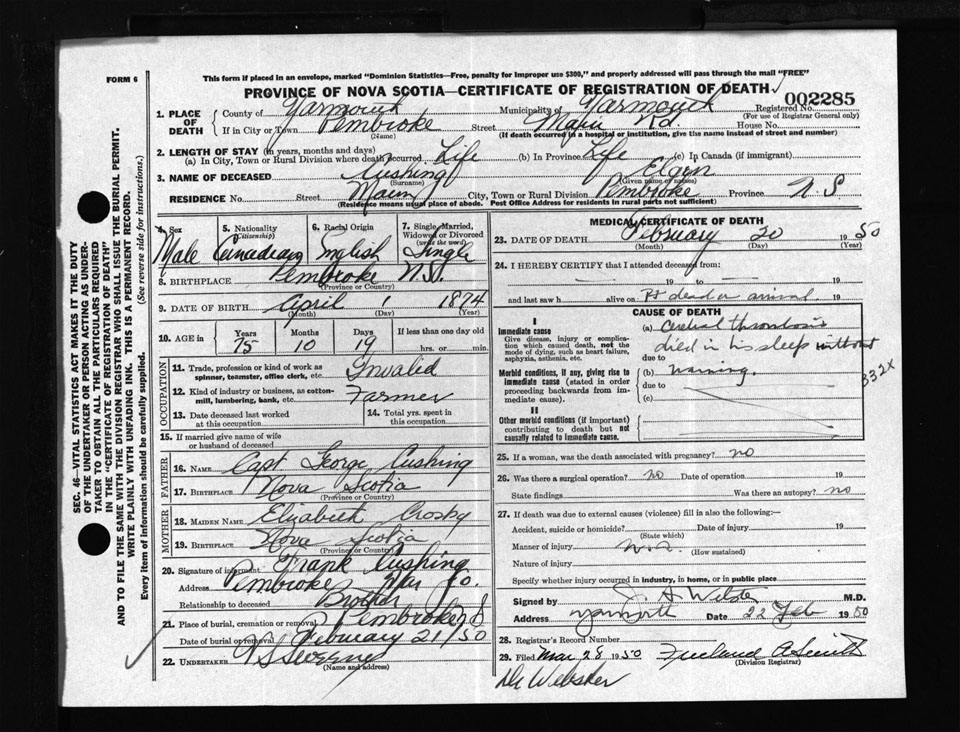 This form if placed in an envelope, marked "Dominion Statistics—Free, penalty for improper use $300," and properly addressed will pass through the mail "FREE"
FORM 6
PROVINCE OF NOVA SCOTIA—CERTIFICATE OF REGISTRATION OF DEATH
002285
1. PLACE OF DEATH County of Yarmouth Municipality of Yarmouth Registered No.
(For use of Registrar General only)
If in City or Town Pembroke Street Main Rd. House No.
(Name) (If death occurred in a hospital or institution, give the name instead of street and number)
2. LENGTH OF STAY (in years, months and days)
(a) In City, Town or Rural Division where death occurred Life (b) In Province Life (c) In Canada (if immigrant)
3. NAME OF DECEASED Cushing Elgin
(Surname) (Given name or names)
RESIDENCE No. Street Main City, Town or Rural Division Pembroke Province N S
(Residence means usual place of abode. Post Office Address for residents in rural parts not sufficient)
SEC. 46—VITAL STATISTICS ACT MAKES IT THE DUTY
OF THE UNDERTAKER OR PERSON ACTING AS UNDER-
TAKER TO OBTAIN ALL THE PARTICULARS REQUIRED
IN THE "CERTIFICATE OF REGISTRATION OF DEATH"
AND TO FILE THE SAME WITH THE DIVISION REGISTRAR WHO SHALL ISSUE THE BURIAL PERMIT.
WRITE PLAINLY WITH UNFADING INK. THIS IS A PERMANENT RECORD.
Every item of information should be carefully supplied. (See reverse side for instructions.)
4. Sex 5. Nationality (Citizenship) 6. Racial Origin 7. Single, Married, Widowed or Divorced (write the word)
Male Canadian English Single
8. BIRTHPLACE Pembroke N.S.
(Province or Country)
9. DATE OF BIRTH April 1 1874
(Month) (Day) (Year)
10. AGE in Years Months Days If less than one day old
75 10 19 hrs. or min.
OCCUPATION
11. Trade, profession or kind of work as spinner, teamster, office clerk, etc. Invalid
12. Kind of industry or business, as cotton-mill, lumbering, bank, etc. Farmer
13. Date deceased last worked at this occupation 14. Total yrs. spent in this occupation
15. If married give name of wife or husband of deceased
FATHER
16. NAME Capt. George Cushing
17. BIRTHPLACE Nova Scotia
(Province or Country)
MOTHER
18. MAIDEN NAME Elizabeth Crosby
19. BIRTHPLACE Nova Scotia
(Province or Country)
20. Signature of informant Frank Cushing
Address Pembroke Yar Co.
Relationship to deceased Brother
21. Place of burial, cremation or removal Pembroke N S
Date of burial or removal February 21/50
22. UNDERTAKER V S Sweeney
(Name and address)
MEDICAL CERTIFICATE OF DEATH
23. DATE OF DEATH February 20 1950
(Month) (Day) (Year)
24. I HEREBY CERTIFY that I attended deceased from:
19 to 19
and last saw h alive on Pt dead on arrival. 19
CAUSE OF DEATH
I
Immediate cause (a) Cerebral thrombosis
Give disease, injury or complication which caused death, not the mode of dying, such as heart failure, asphyxia, asthenia, etc.
died in his sleep without
due to
Morbid conditions, if any, giving rise to immediate cause (stated in order proceeding backwards from immediate cause).
(b) warning.
332X
due to
(c)
II
Other morbid conditions (if important) contributing to death but not causally related to immediate cause.
25. If a woman, was the death associated with pregnancy? no
26. Was there a surgical operation? no Date of operation 19
State findings Was there an autopsy? no
27. If death was due to external causes (violence) fill in also the following:—
Accident, suicide or homicide? Date of injury 19
(State which)
Manner of injury
(How sustained)
Nature of injury
Specify whether injury occurred in industry, in home, or in public place
Signed by M.D.
Address Yarmouth Date 22 Feb 1950
28. Registrar's Record Number
29. Filed Mar 28 1950 Freeland A Smith
(Division Registrar)
Dr Webster